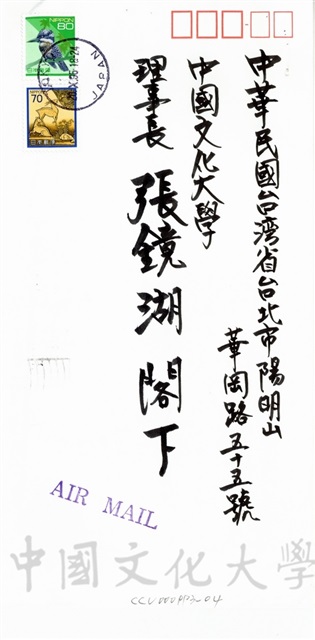 中華民國台湾省台北市陽明山
華岡路五十五號
中國文化大學
理事長 張鏡湖 閣下
NIPPON
80
70
JAPAN
AIR MAIL
中國文化大學